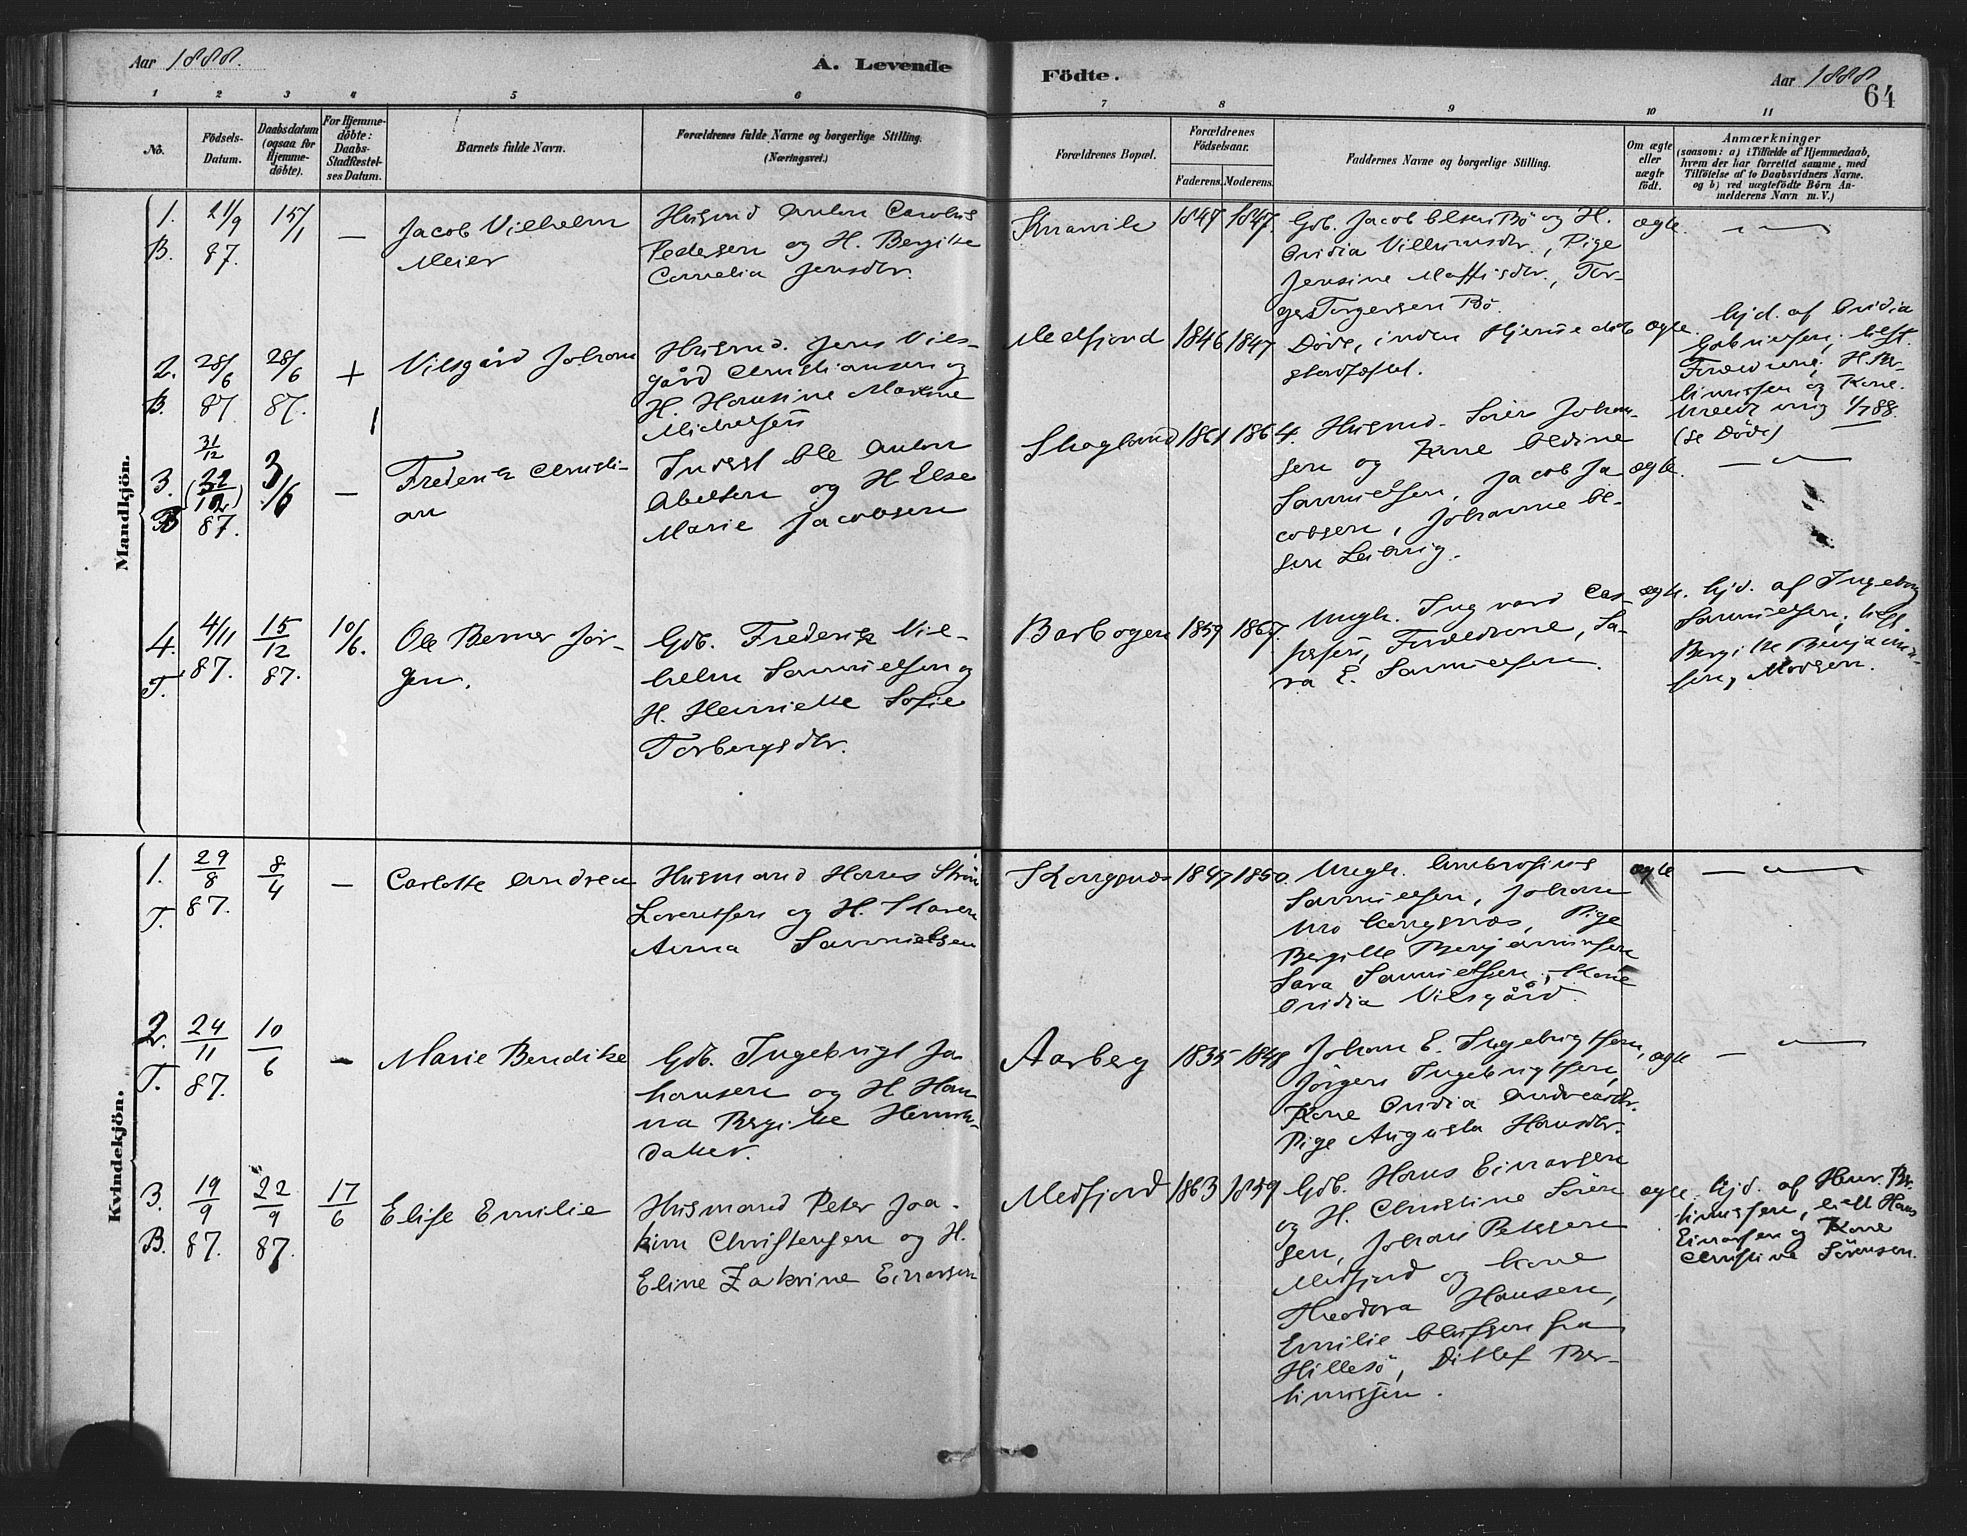 Aar 1888.
A. Levende
Födte.
Aar 1888
64
1 2 3 4 5 6 7 8 9 10 11
No.
Födsels-
Datum.
Daabsdatum
(ogsaa for
Hjemme-
døbte).
For Hjemme-
døbte:
Daabs-
Stadfæstel-
ses Datum.
Barnets fulde Navn.
Forældrenes fulde Navne og borgerlige Stilling.
(Næringsvei.)
Forældrenes Bopæl.
Forældrenes
Födselsaar.
Faderens.
Moderens.
Faddernes Navne og borgerlige Stilling.
Om ægte
eller
uægte
födt.
Anmærkninger
(saasom: a) i Tilfælde af Hjemmedaab,
hvem der har forrettet samme, med
Tilföielse af to Daabsvidners Navne.
og b) ved uægtefödte Börn An-
melderens Navn m. V.)
Mandkjön.
1.
B.
21/9
87.
15/1
—
Jacob Vilhelm
Meier
Husmd Anton Carolus
Pedersen og H. Bergitte
Cornelia Jensdtr.
1847
1847.
Gdb. Jacob Olsen Bö og H.
Ovidia Villumsdtr., Pige
Jensine Mathisdtr., Tor-
ger Torgersen Bö
ægte.
2.
B.
28/6
87
28/6
87.
+
Vilsgård Johan
Husmd. Jens Vils-
gård Christiansen og
H. Hansine Martine
Michelsen
Medfjord
1846
1847
Döde, inden Hjemmedåb
stadfæstet.
ægte.
Hjd. af Ovidia
Gabrielsen, bekft.
Forældrene, H. Ber-
tinussen og Kone.
1/7 88.
(se Döde)
3.
B
31/12
(31/12)
87.
3/6
—
Frederik Christi-
an
Inderst Ole Anton
Abelsen og H Else
Marie Jacobsen
Skogland
1861
1864.
Husmd. Sören Johan-
sen og Kone Oldine
Samuelsen, Jacob Ja
cobsen, Johanne Ol-
sen Leikvig.
ægte.
4.
T.
4/11
87.
15/12
87.
10/6.
Ole Berner Jör-
gen.
Gdb. Frederik Vil-
helm Samuelsen og
H. Henriette Sofie
Torbergsdtr.
Barbogen
1859
1867.
Ungk. Ingvard Cas-
persen, Forældrene, Sa-
ra E. Samuelsen.
ægte.
Hjd. af Ingeborg
Samuelsen, bekf.
Bergitte Benjamin-
sen, Modgen.
Kvindekjön.
1.
T.
29/8
87.
8/4
—
Carlotte Andrea
Husmand Hans Ström
Lorentsen og H. Maren
Anna Samuelsen
Kongsnæs
1847
1850.
Ungk. Ambrosius
Samuelsen, Johan
Kongsnæs, Pige
Bergitte Benjaminsen
Sara Samuelsen, Kone
Ovidia Vilsgård.
ægte
2.
T.
24/11
87.
10/6
—
Marie Bendikte
Gdb. Ingebrigt Jo
hansen og H Han
na Bergitte Henrik-
datter.
Aarberg
1835
1848
Johan E. Ingebrigtsen,
Jörgen Ingebrigtsen,
Kone Ovidia Andreasdtr.
Pige Augusta Hansdtr.
ægte
3.
B.
19/9
87.
22/9
87.
17/6
Elise Emilie
Husmand Peter Joa-
kim Christensen og H.
Eline Zakrine Einarsen
Medfjord
1863
1859
Gdb. Hans Einarsen
og H. Christine Sören
sen, Johan Pettersen
Medfjord og Kone
Theodora Hansen,
Emilie Olufsen fra
Hillesö, Ditlef Ber-
tinussen.
ægte.
Hjd. af Henr. Ber-
tinussen, bekft Hans
Einarsen og Kone
Christine Sörensen.